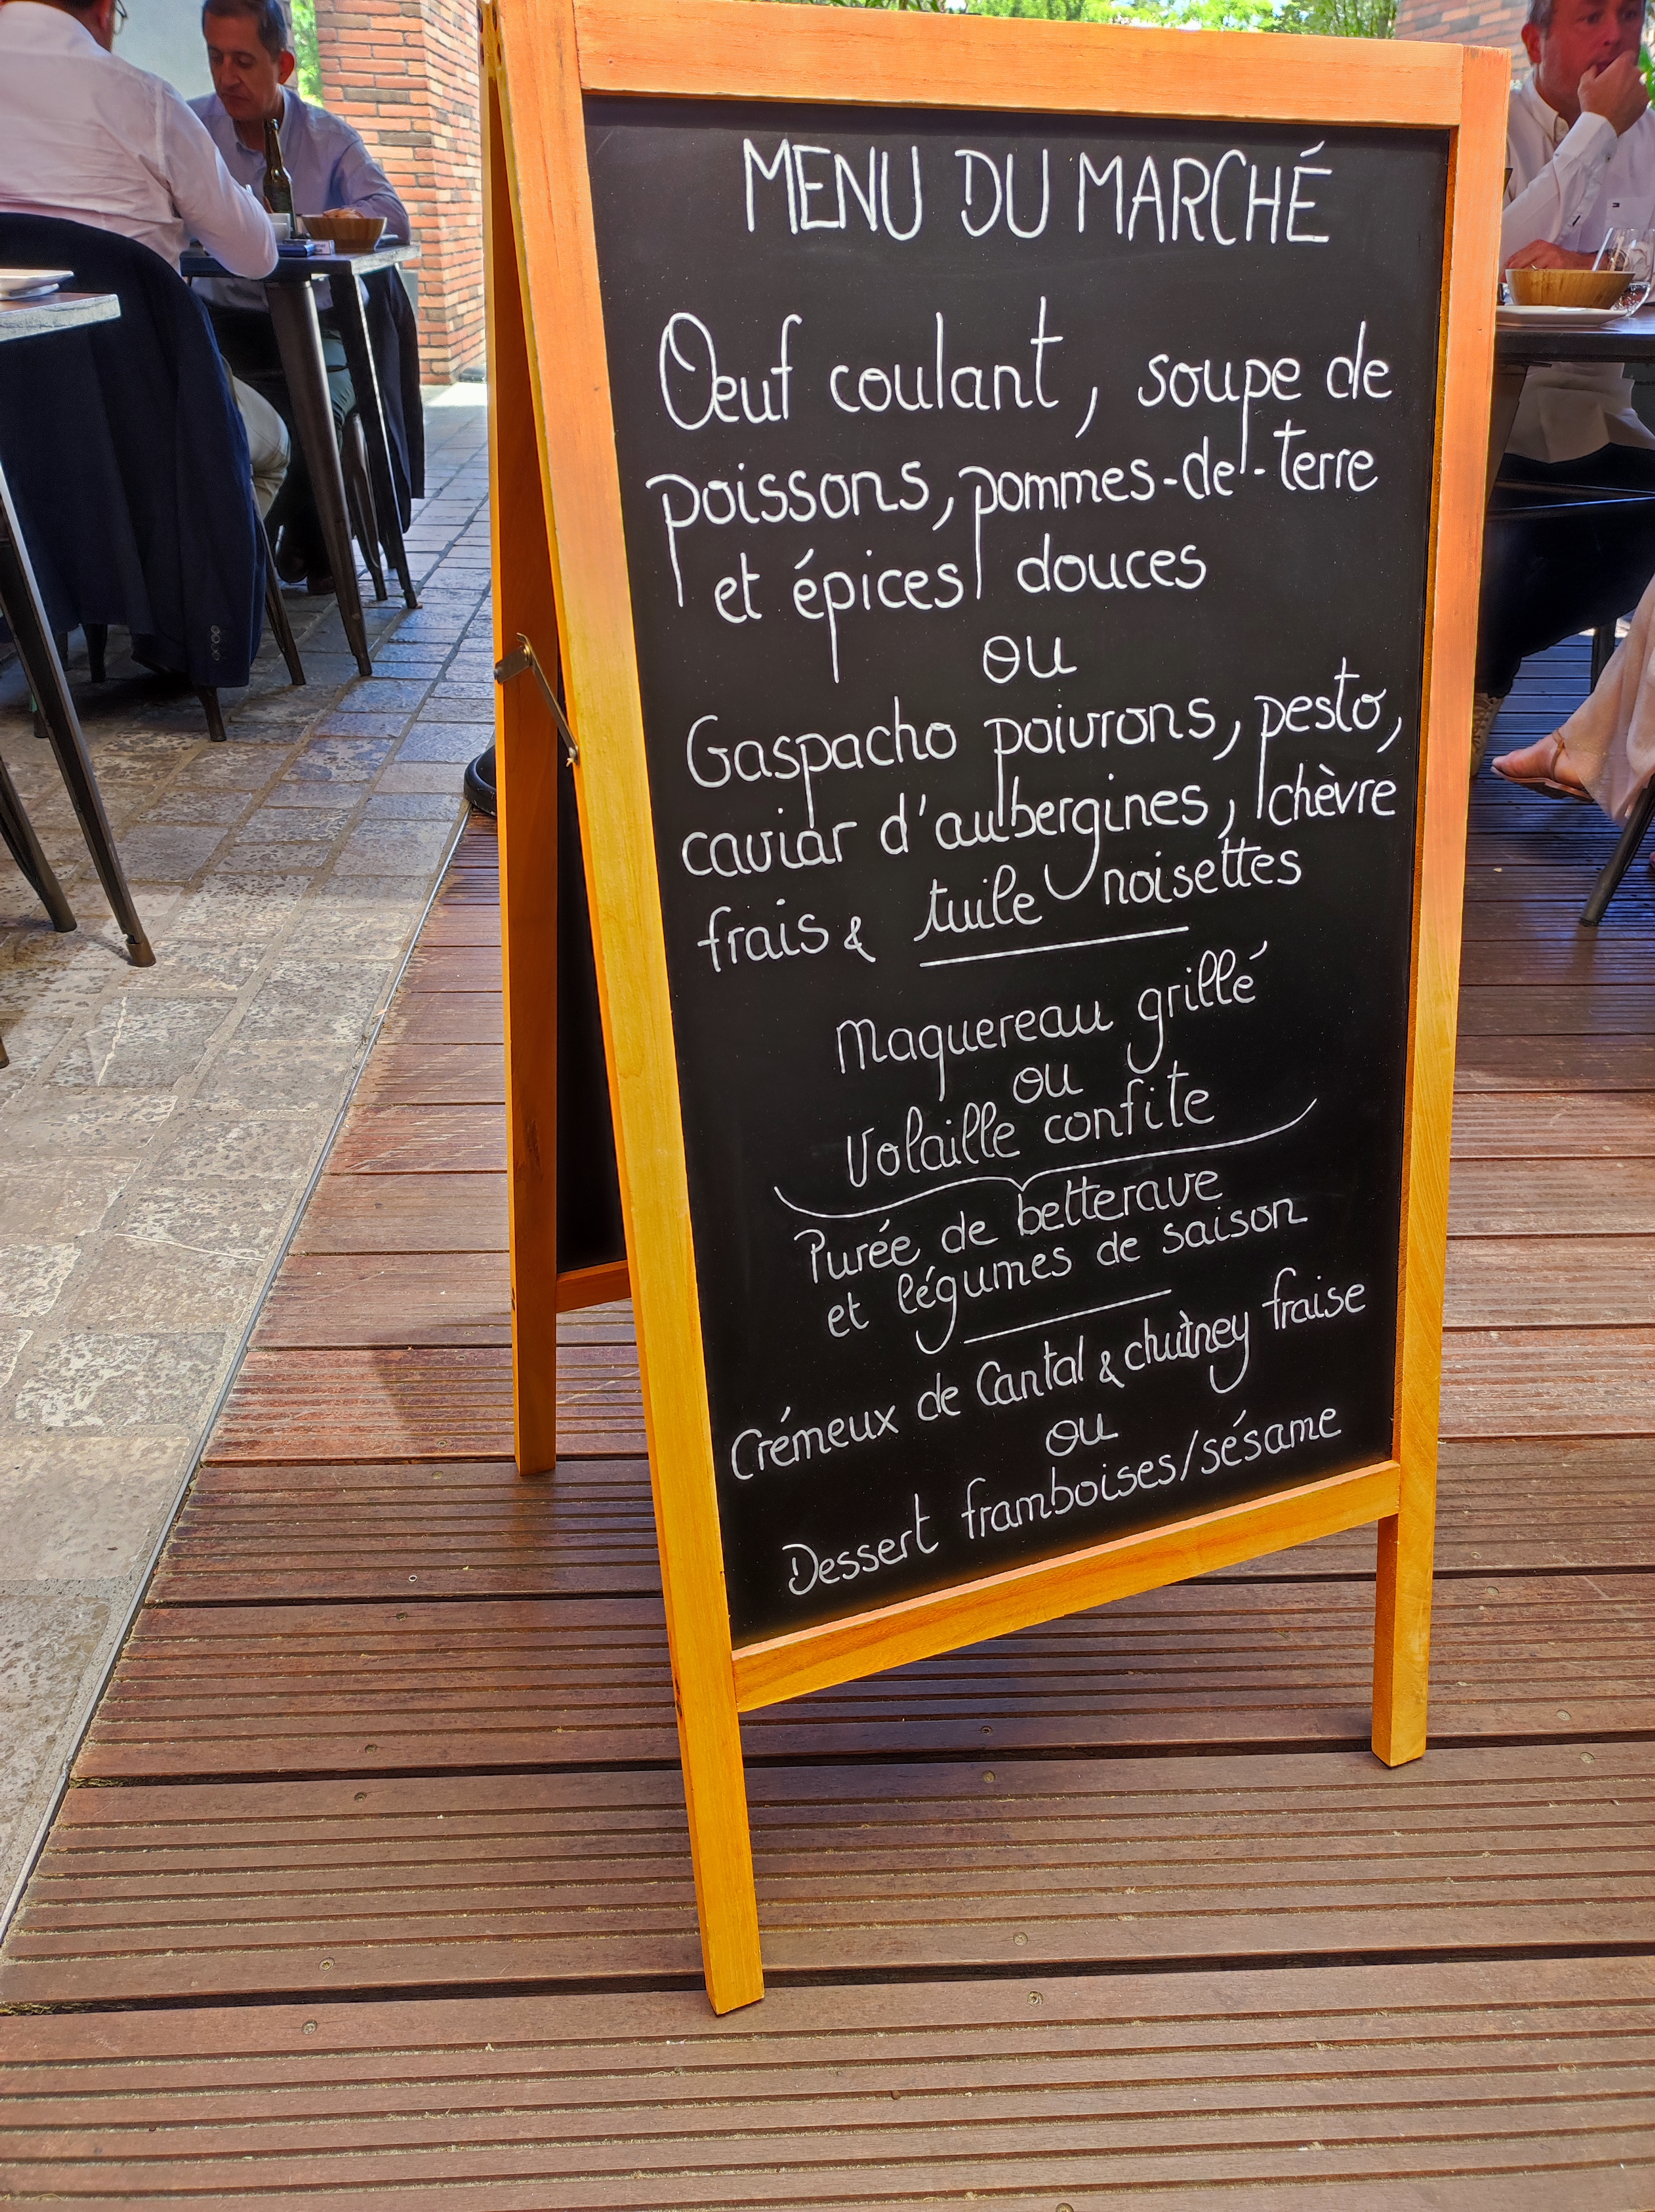 MENU DU MARCHÉ
Œuf coulant, soupe de
poissons, pommes-de-terre
et épices douces
ou
Gaspacho poivrons, pesto,
caviar d'aubergines, chèvre
frais & tuile noisettes
Maquereau grillé
ou
Volaille confite
Purée de betterave
et légumes de saison
Crémeux de Cantal & chutney fraise
ou
Dessert framboises/sésame